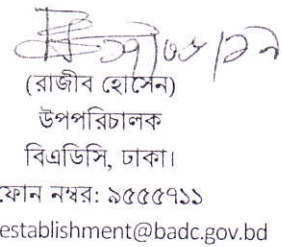 (রাজীব হোসেন)
উপপরিচালক
বিএডিসি, ঢাকা।
ফোন নম্বর: ৯৫৫৫৭১১
establishment@badc.gov.bd